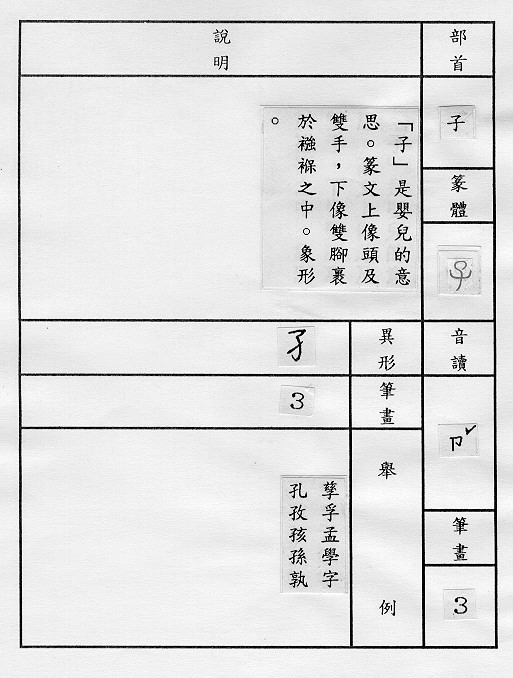 部首
子
篆體
音讀
ㄗˇ
筆畫
3
說明
「子」是嬰兒的意
思。篆文上像頭及
雙手，下像雙腳裹
於襁褓之中。象形
。
異形
孑
筆畫
3
舉例
孳孚孟學字
孔孜孩孫孰